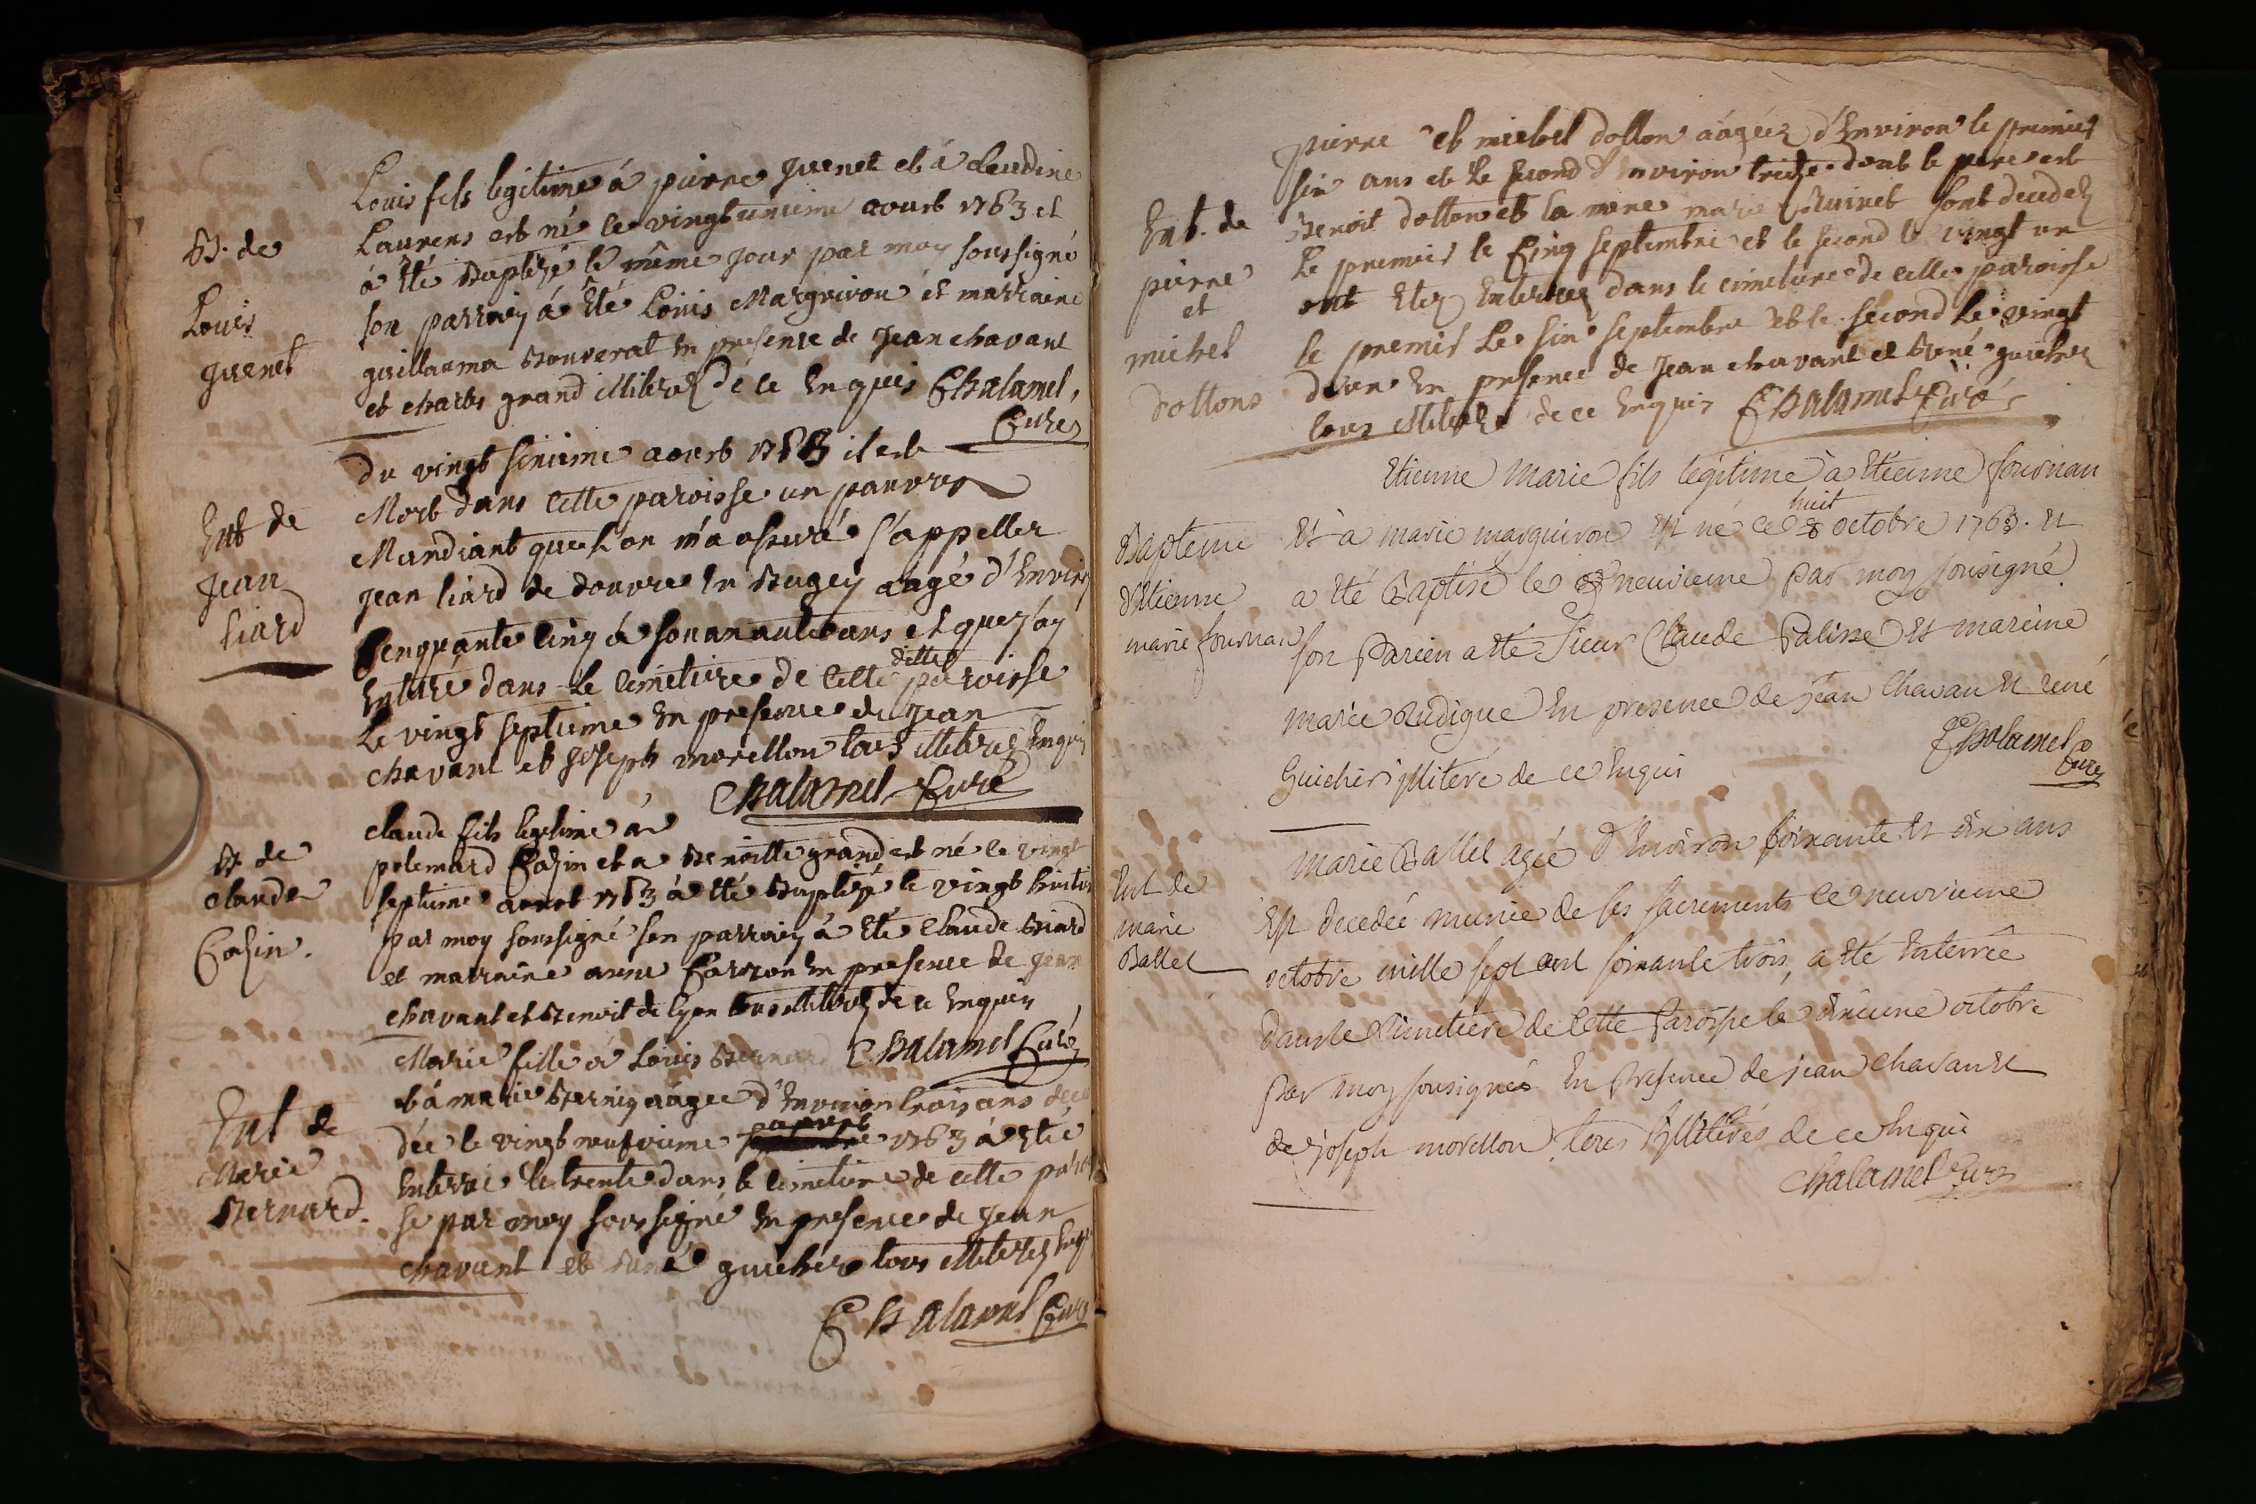 B. de
Louis
guenet
Louis fils legitime à pierre guenet et à claudine
Laurens est né le vingt unieme aoust 1763 et
à êté Baptizé le même jour par moy soussigné
son parrain à êté Louis Margniron et marraine
guillarma Bouverat en presence de Jean chavant
et charles grand illiterez de ce enquis Chalamel,
Curé
Ent de
Jean
liard
du vingt sixieme aoust 1763 il est
Mort dans cette paroisse un pauvre
Mandiant que l'on m'a assuré s'appeller
Jean liard de douvre en Bugey aagé d'environ
Cenquante cinq à soixante ans et que j'ay
ditte
Enterré dans le cimetiere de cette paroisse
Le vingt septieme en presence de Jean
chavant et Joseph morellon tous illiterez enquis
Chalamel Curé
B de
claude
Cozin.
claude fils legitime à
polemard Cozin et a Benoitte grand est né le vingt
septieme aoust 1763 à êté Baptizé le vingt huitie
par moy soussigné son parrain à êté claude Biard
et marraine anne Carron en presence de Jean
chavant et Benoit de lyon tous illiterez de ce enquis
Chalamel Curé
Ent de
Marie
Bernard.
Marie fille à Louis Bernard
et à marie Bernin aagee d'environ trois ans dece
aoust
dée le vingt neufvieme 1763 à êté
Enterrée le trente dans le cimetiere de cette parois
se par moy soussigné en presence de Jean
chavant et René guicher tous illiterez enquis
Chalamel Curé
Ent. de
pierre
et
michel
dottons
pierre et michel dotton aagéez d'environ le premier
six ans et le second d'environ treize dont le pere est
Benoit dotton et la mere marie sont decedez
Le premier le Cinq septembre et le second le vingt un
ont etez enterrez dans le cimetiere de cette paroisse
le premier le six septembre et le second le vingt
deux en presence de Jean chavant et René guicher
tous illiterez de ce enquis Chalamel Curé
Bapteme
d'Etienne
marie fournau
Etienne Marie fils legitime à Etienne fournau
huit
Et à marie marguiron est né le 8 octobre 1763. Et
a eté Baptisé le neuvieme par moy sousigné
son Parien a eté Sieur Claude Palisse et mareine
marie Rudigue En presence de jean Chavan Et rené
Guicher illiteré de ce enquis
Chalamel
Curé
Ent de
marie
Ballet
Marie Ballet agée d'Environ soixante et dix ans
Est decedée munie de ses sacrements le neuvieme
octobre mille sept cent soixante trois, a eté Enterrée
dans le Cimetiere de cette Paroisse le dixieme octobre
Par moy sousignés En Presence de jean Chavan Et
de joseph morellon tous illiterés de ce enqui
Chalamel Curé